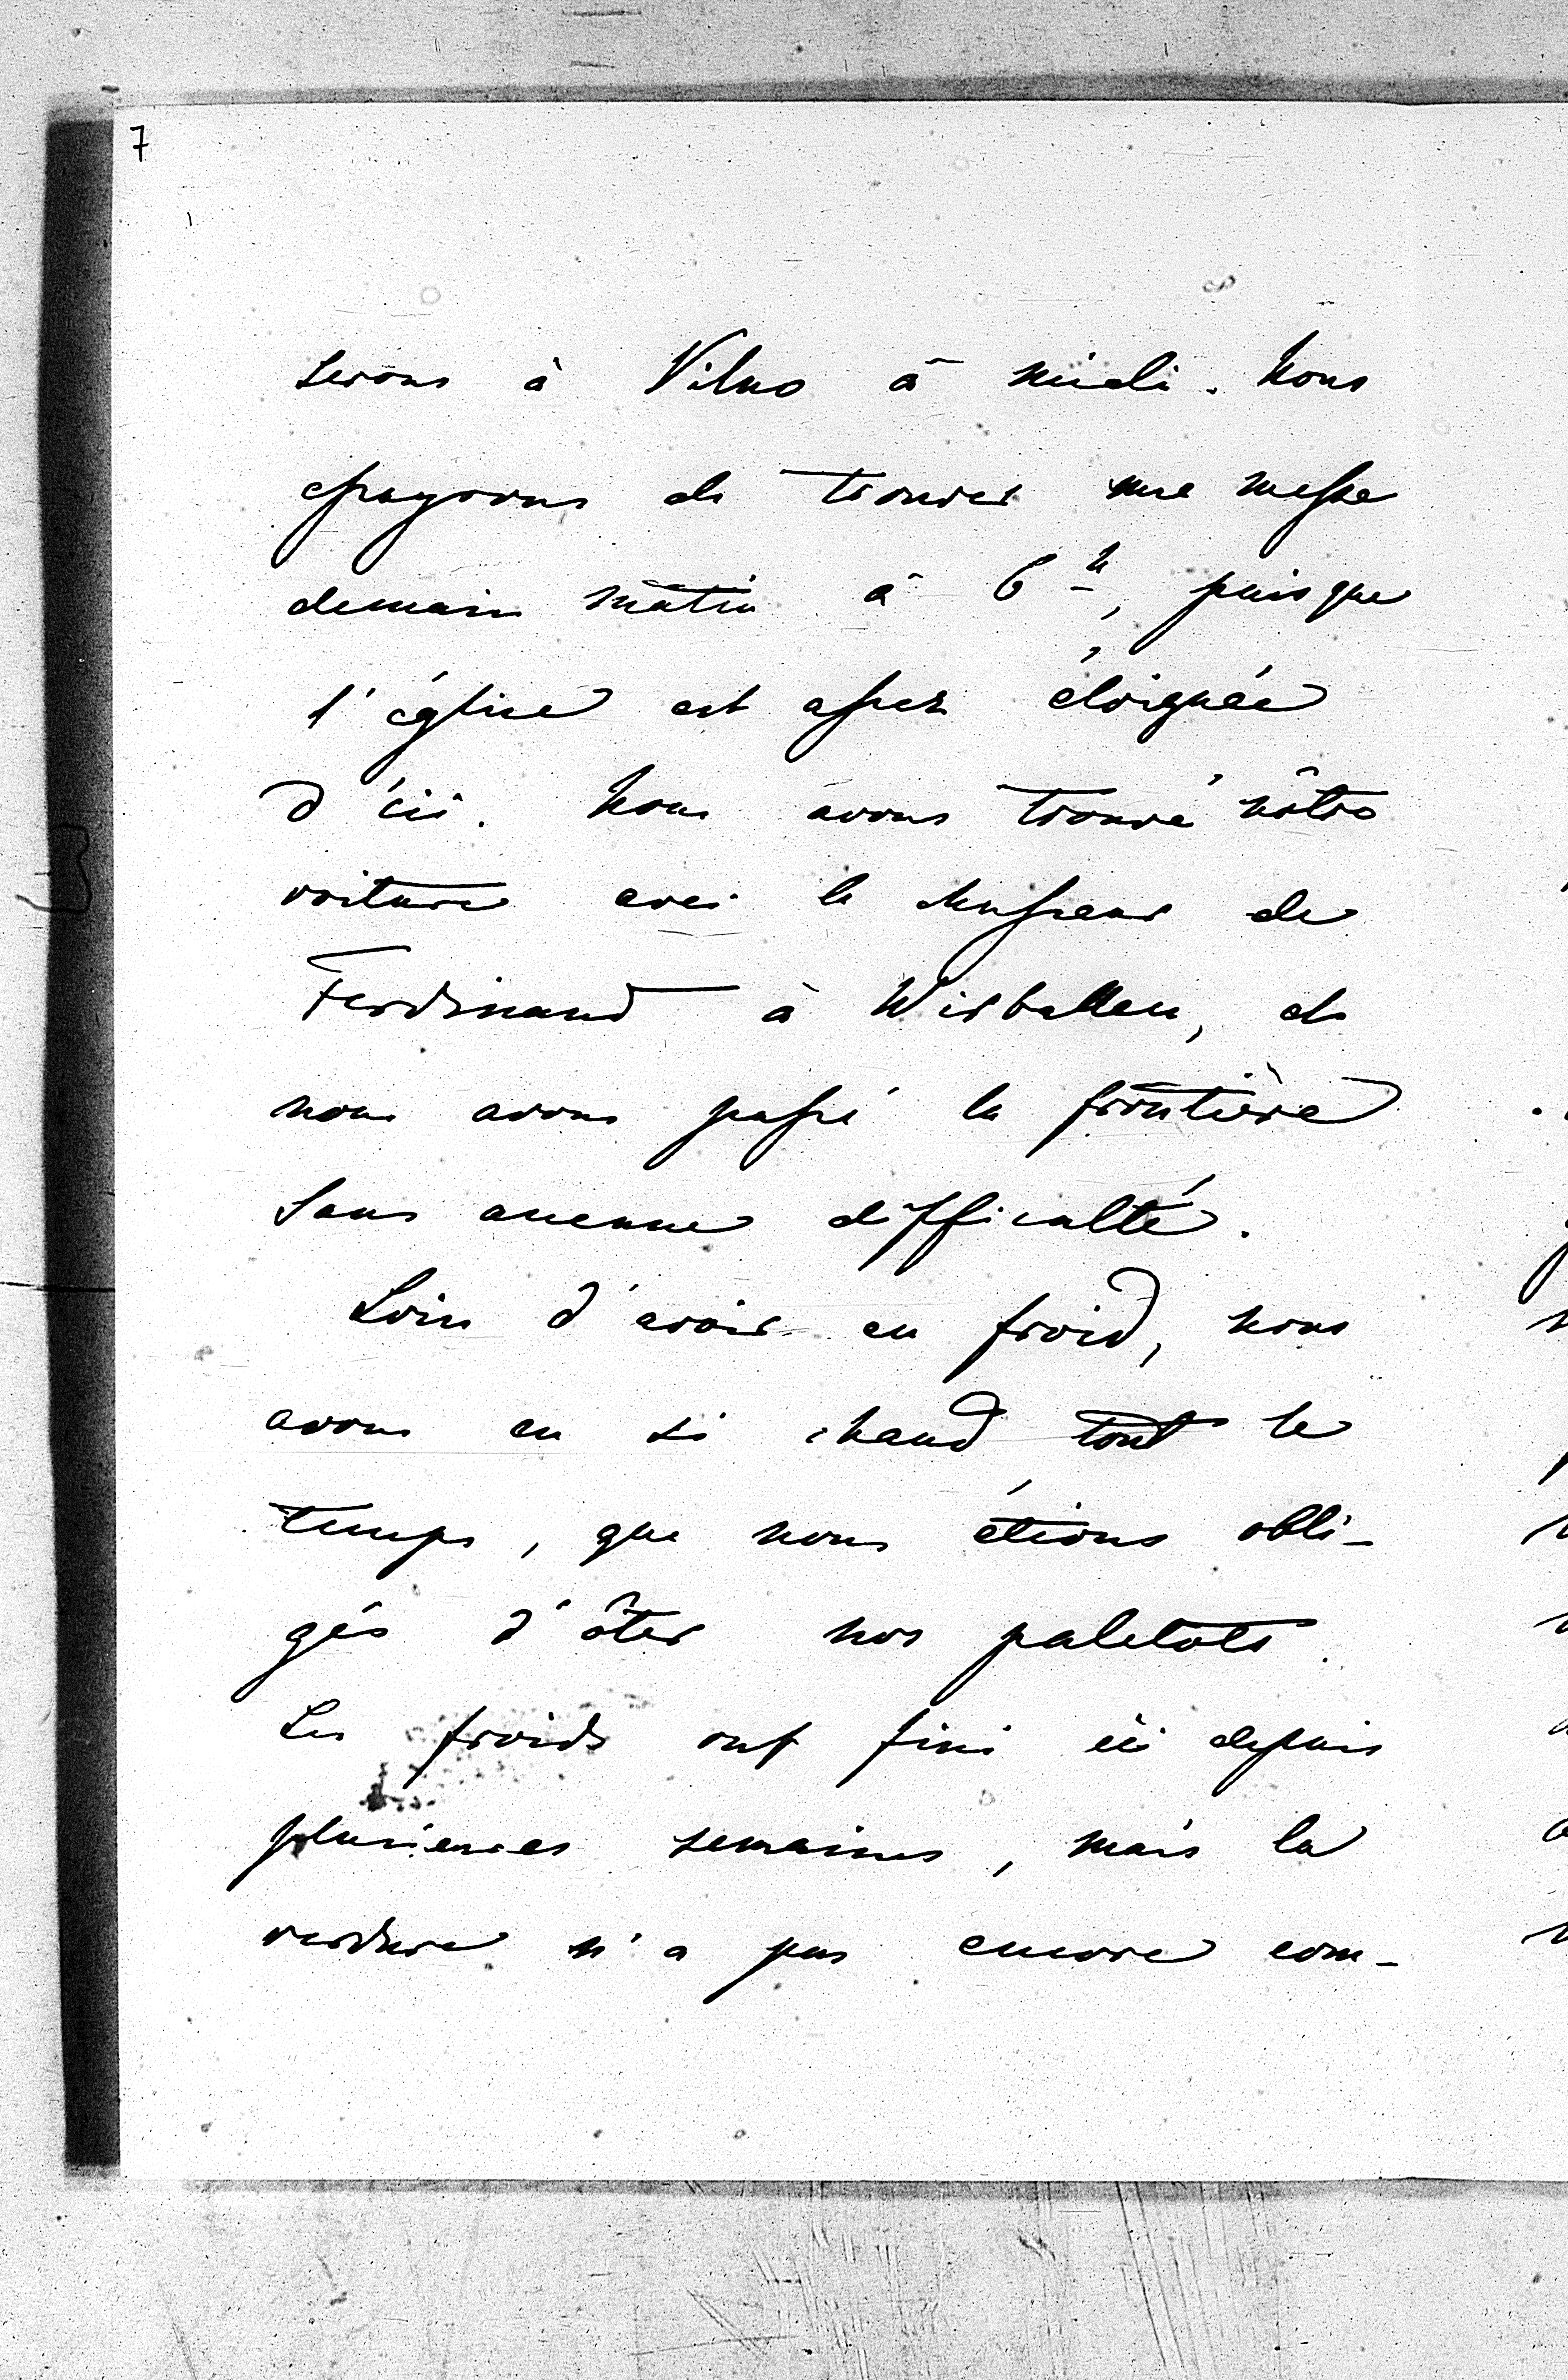 7
serons à Vilno à midi. Nous
essayerons de trouver une messe
demain matin à 6 h, puisque
l'église est assez éloignée
d'ici. Nous avons trouvé nôtre
voiture avec le chasseur de
Ferdinand à Wirballen, et
nous avons passé la frontière
sans aucune difficulté.
Loin d'avoir eu froid, nous
avons eu si chaud tout le
temps, que nous étions obli-
gés d'ôter nos paletots.
Les froids ont fini ici depuis
plusieures semaines, mais la
verdure n'a pas encore com-